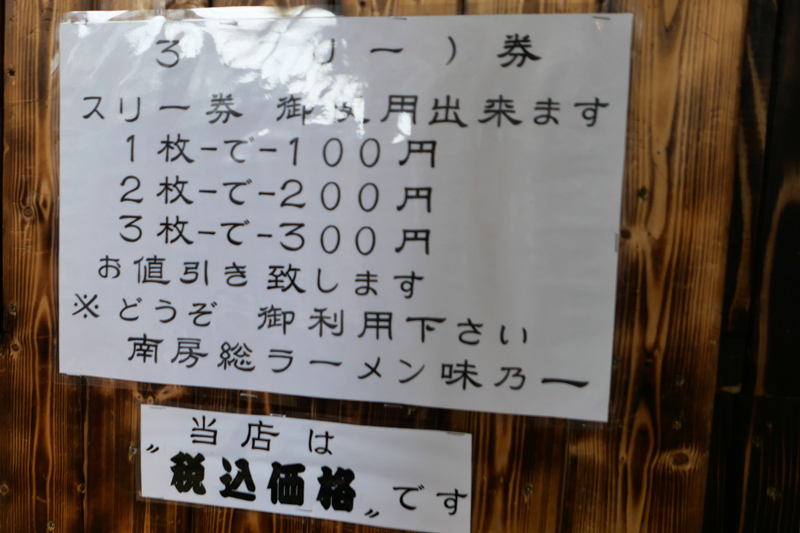 3 リー)券
スリー券 御使用出来ます
1枚-で-100円
2枚-で-200円
3枚-で-300円
お値引き致します
※どうぞ 御利用下さい
南房総ラーメン味乃一
当店は
〃税込価格〃です